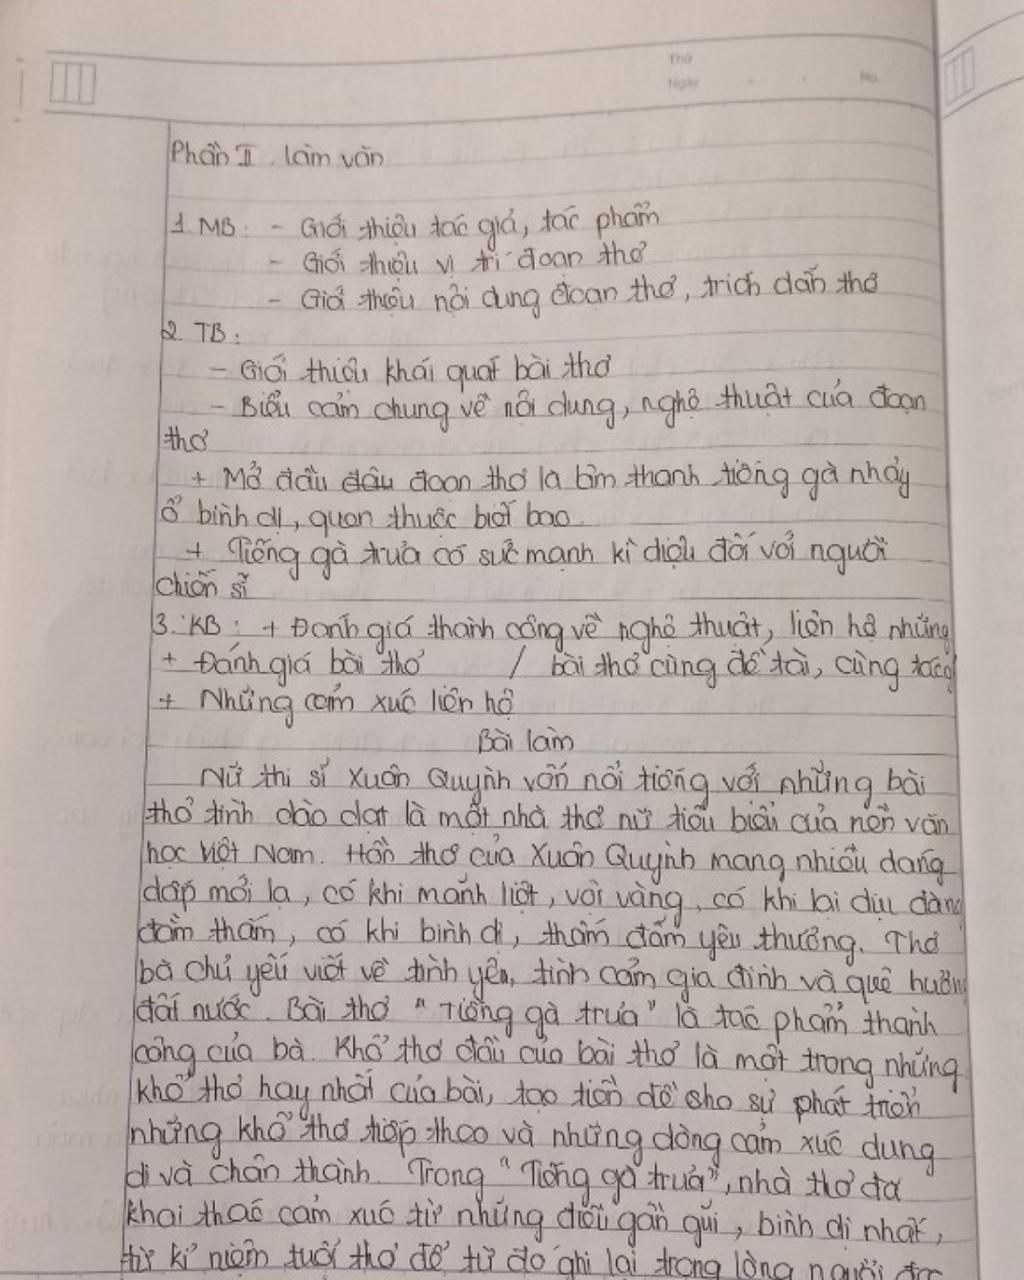 Thứ
Ngày No.
Phần II. Làm văn
1. MB: - Giới thiệu tác giả, tác phẩm
- Giới thiệu vị trí đoạn thơ
- Giới thiệu nội dung đoạn thơ, trích dẫn thơ
2. TB:
- Giới thiệu khái quát bài thơ
- Biểu cảm chung về nội dung, nghệ thuật của đoạn
thơ
+ Mở đầu đầu đoạn thơ là âm thanh tiếng gà nhảy
ổ bình dị, quen thuộc biết bao.
+ Tiếng gà trưa có sức mạnh kì diệu đối với người
chiến sĩ
3. KB: + Đánh giá thành công về nghệ thuật, liên hệ những
+ Đánh giá bài thơ / bài thơ cùng đề tài, cùng tácg
+ Những cảm xúc liên hệ
Bài làm
Nữ thi sĩ Xuân Quỳnh vốn nổi tiếng với những bài
thơ tình dào dạt là một nhà thơ nữ tiêu biểu của nền văn
học Việt Nam. Hồn thơ của Xuân Quỳnh mang nhiều dáng
dấp mới lạ, có khi mãnh liệt, vội vàng, có khi lại dịu dàng
đằm thắm, có khi bình dị, thấm đẫm yêu thương. Thơ
bà chủ yếu viết về tình yên, tình cảm gia đình và quê hương
đất nước. Bài thơ "Tiếng gà trưa" là tác phẩm thành
công của bà. Khổ thơ đầu của bài thơ là một trong những
khổ thơ hay nhất của bài, tạo tiền đề cho sự phát triển
những khổ thơ tiếp theo và những dòng cảm xúc dung
dị và chân thành. Trong "Tiếng gà trưa", nhà thơ đã
khai thác cảm xúc từ những điều gần gũi, bình dị nhất,
từ kỉ niệm tuổi thơ để từ đó ghi lại trong lòng người đọc